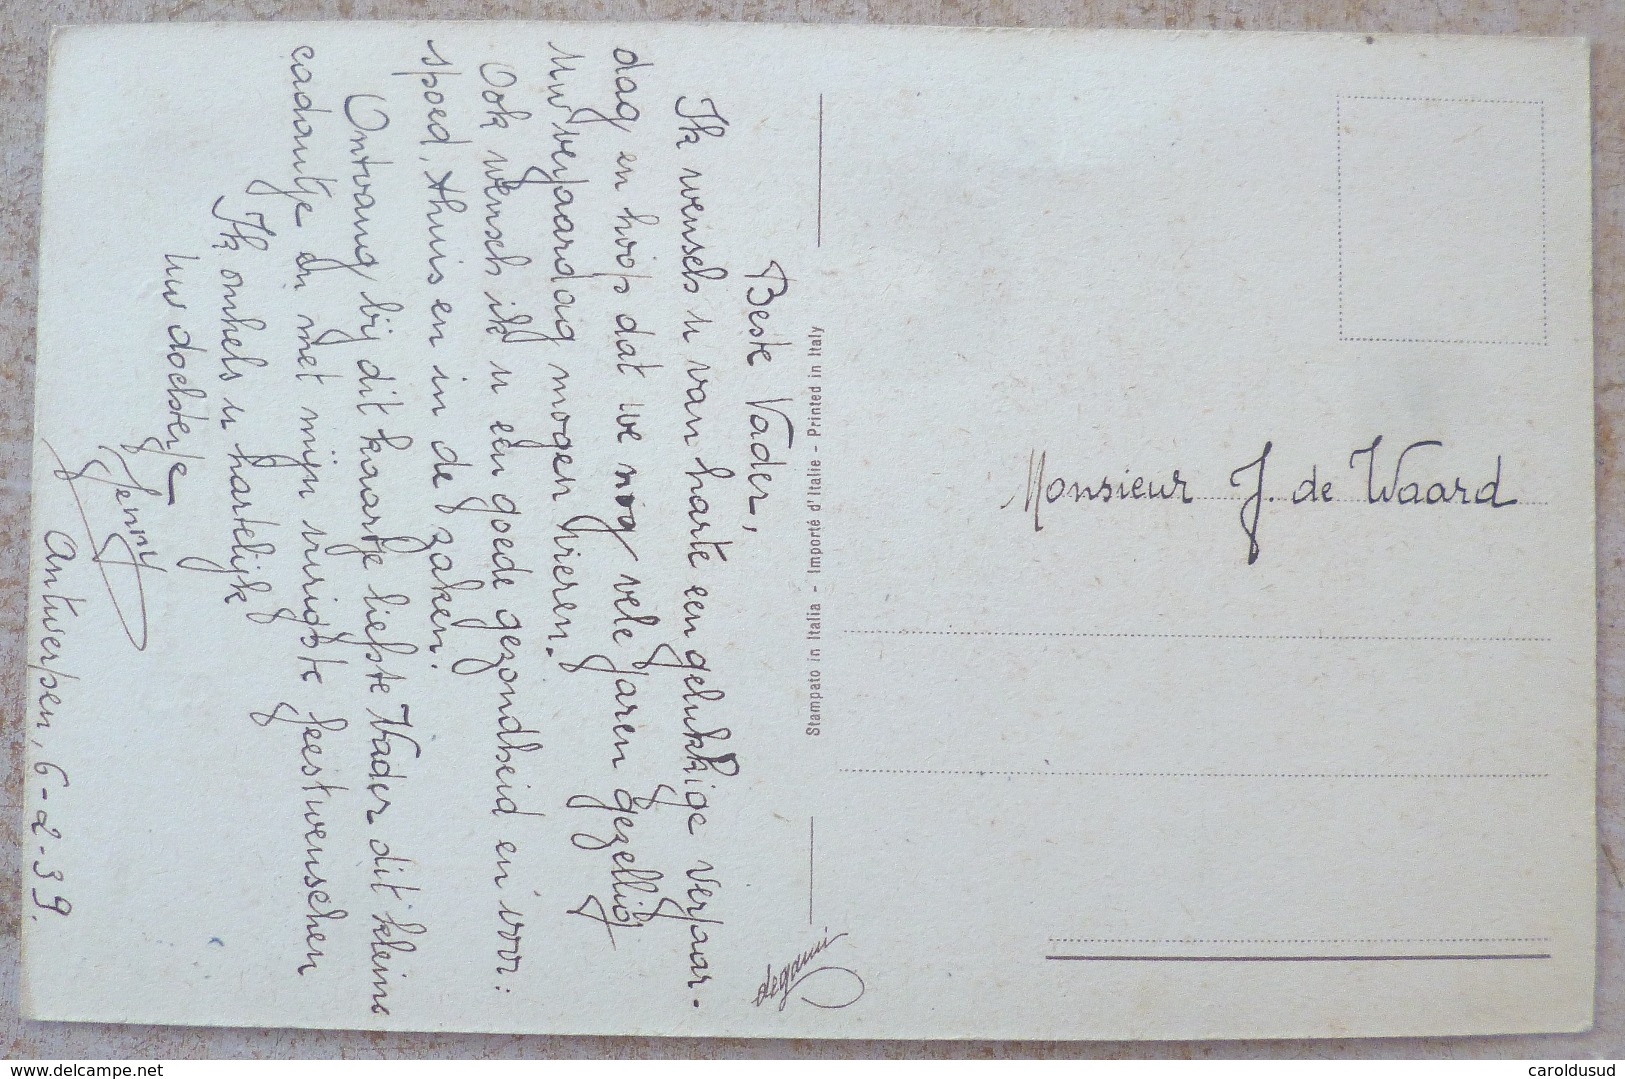 Beste Vader,
Ik wensch u van harte een gelukkige verjaar-
dag en hoop dat we nog vele jaren gezellig
Uw verjaardag mogen vieren.
Ook wensch ik u een goede gezondheid en voor:
spoed, thuis en in de zaken.
Ontvang bij dit kaartje liefste Vader dit klein
cadautje en met mijn vurigste feestwenschen
Ik omhels u hartelijk
Uw dochterje
Jenny
Antwerpen, 6-2-39.
Stampato in Italia - Importé d'Italie - Printed in Italy
degami
Monsieur J. de Waard
www.delcampe.net
caroldusud